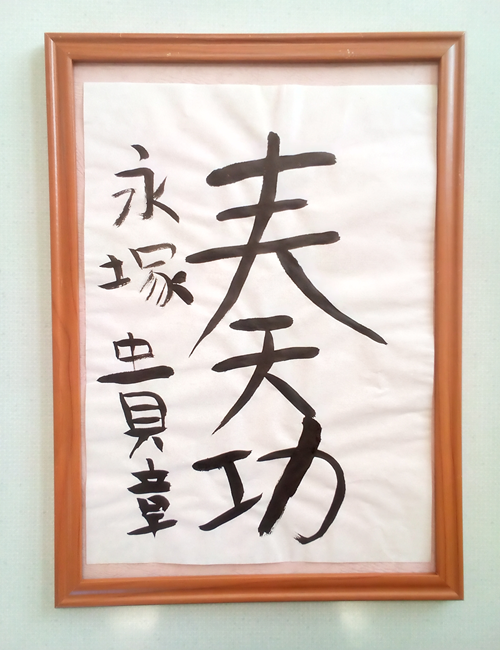 奏功
永塚貴章